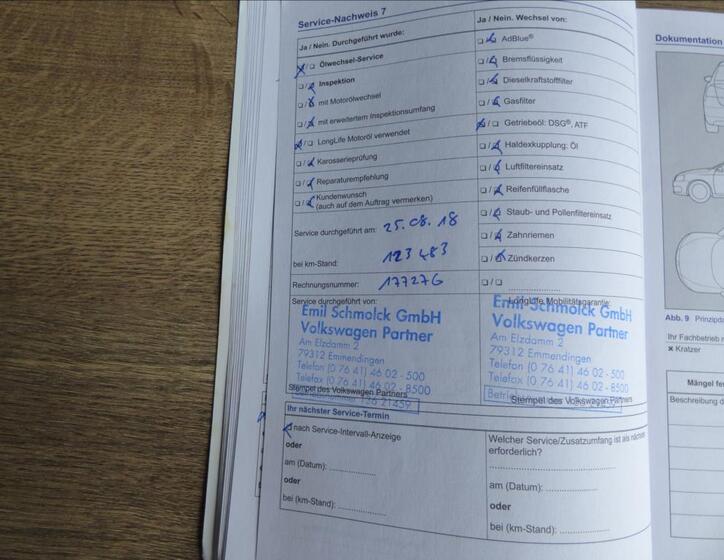 Service-Nachweis 7
Ja / Nein. Durchgeführt wurde:
Ölwechsel-Service
Inspektion
mit Motorölwechsel
mit erweitertem Inspektionsumfang
LongLife Motoröl verwendet
Karosserieprüfung
Reparaturempfehlung
Kundenwunsch
(auch auf dem Auftrag vermerken)
Service durchgeführt am: 25.08.18
bei km-Stand: 123 483
Rechnungsnummer: 177276
Service durchgeführt von:
Emil Schmolck GmbH
Volkswagen Partner
Am Elzdamm 2
79312 Emmendingen
Telefon (0 76 41) 46 02 - 500
Telefax (0 76 41) 46 02 - 8500
Stempel des Volkswagen Partners
Ja / Nein. Wechsel von:
AdBlue®
Bremsflüssigkeit
Dieselkraftstofffilter
Gasfilter
Getriebeöl: DSG®, ATF
Haldexkupplung: Öl
Luftfiltereinsatz
Reifenfüllflasche
Staub- und Pollenfiltereinsatz
Zahnriemen
Zündkerzen
LongLife Mobilitätsgarantie:
Emil Schmolck GmbH
Volkswagen Partner
Am Elzdamm 2
79312 Emmendingen
Telefon (0 76 41) 46 02 - 500
Telefax (0 76 41) 46 02 - 8500
Stempel des Volkswagen Partners
Ihr nächster Service-Termin
nach Service-Intervall-Anzeige
oder
am (Datum):
oder
bei (km-Stand):
Welcher Service/Zusatzumfang ist als
erforderlich?
am (Datum):
oder
bei (km-Stand):
Dokumentation
Abb. 9
Ihr Fachbetrieb
Kratzer
Mängel
Beschreibung